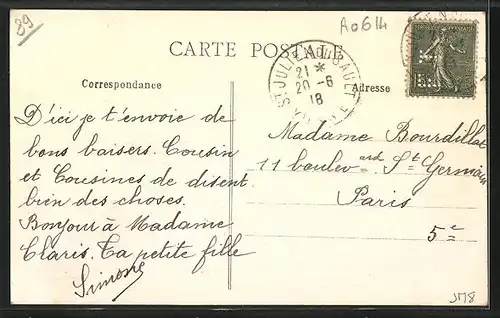 89
A0614
CARTE POSTALE
ST JULIEN DU SAULT
21 *
20-6
18
YONNE
Correspondance
Adresse
D'ici je t'envoie de
bons baisers. Cousin
et Cousines de disent
bien des choses.
Bonjour à Madame
Claris. Ta petite fille
Simone
Madame Bourdillat
11 boulevard St Germain
Paris
5e
JM8